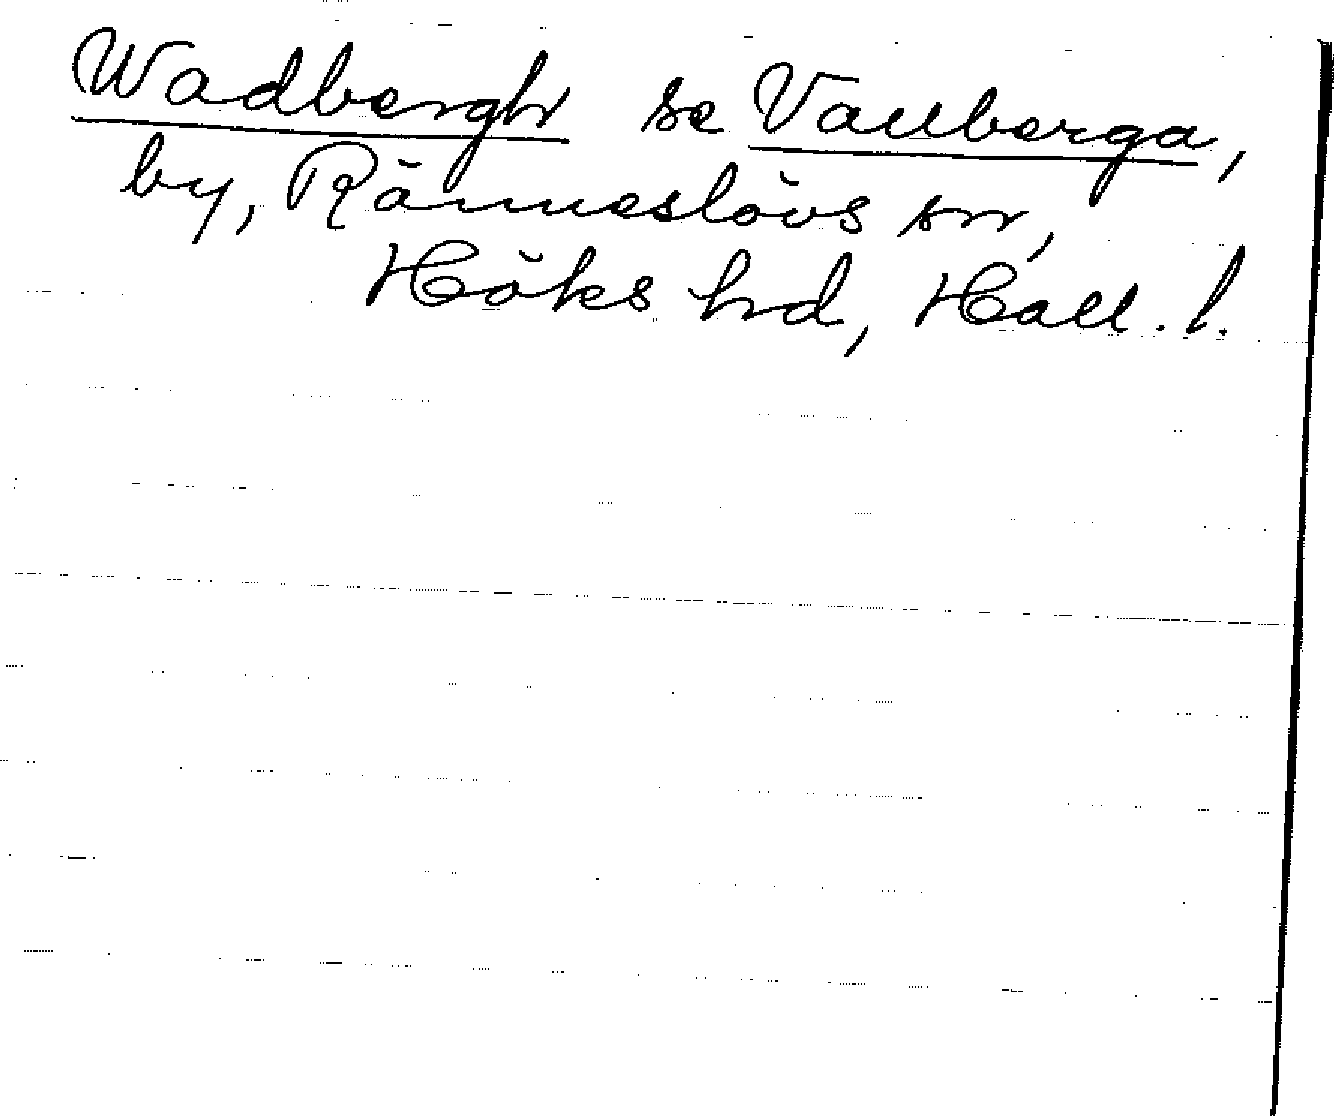 Wadbergh se Vallberga,
by, Ränneslövs sn,
Höks hd, Hall. l.